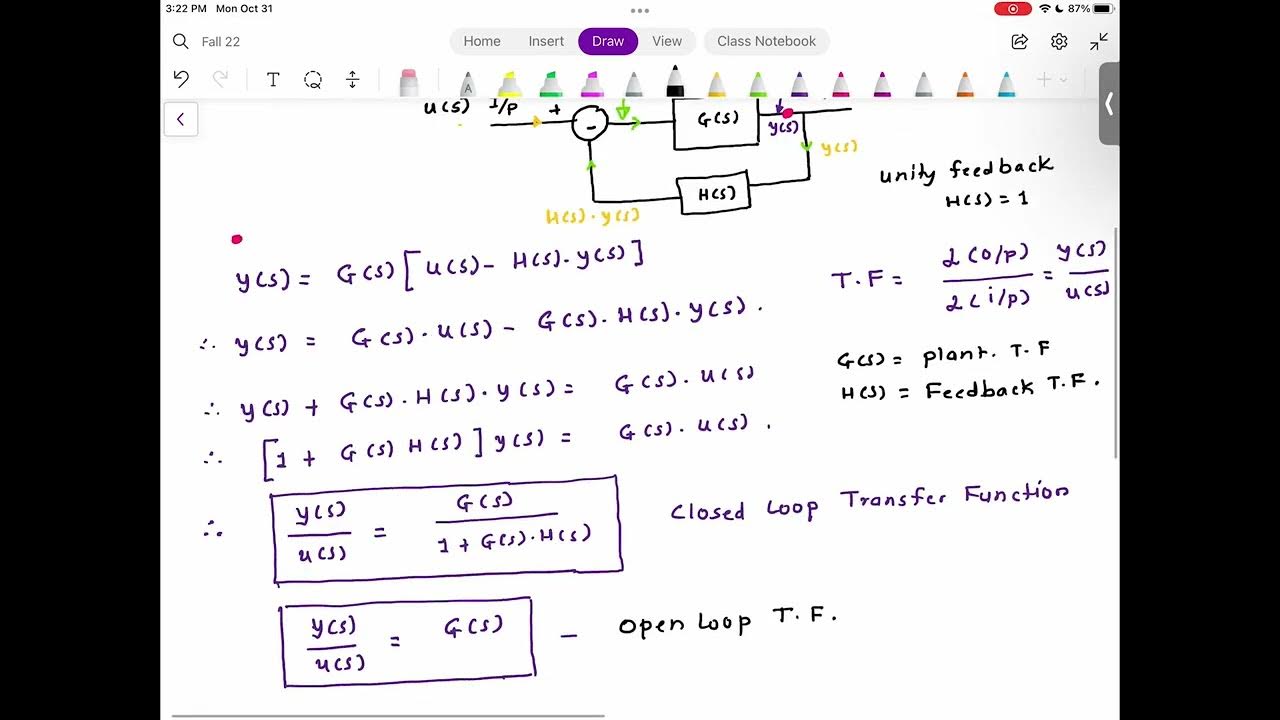 3:22 PM Mon Oct 31
87%
Fall 22
Home Insert Draw View Class Notebook
T
A
U(S) I/P + G(S) y(S)
-
y(S)
H(S)
H(S) · y(S)
unity feedback
H(S) = 1
y(S) = G(S) [ U(S) - H(S) · y(S) ]
T.F = L(O/P) / L(i/P) = y(S) / U(S)
∴ y(S) = G(S) · U(S) - G(S) · H(S) · y(S) .
G(S) = plant. T.F
H(S) = Feedback T.F.
∴ y(S) + G(S) · H(S) · y(S) = G(S) · U(S)
∴ [ 1 + G(S) H(S) ] y(S) = G(S) · U(S) .
∴ y(S) / U(S) = G(S) / 1 + G(S) · H(S)
Closed Loop Transfer Function
y(S) / U(S) = G(S) - Open Loop T.F.